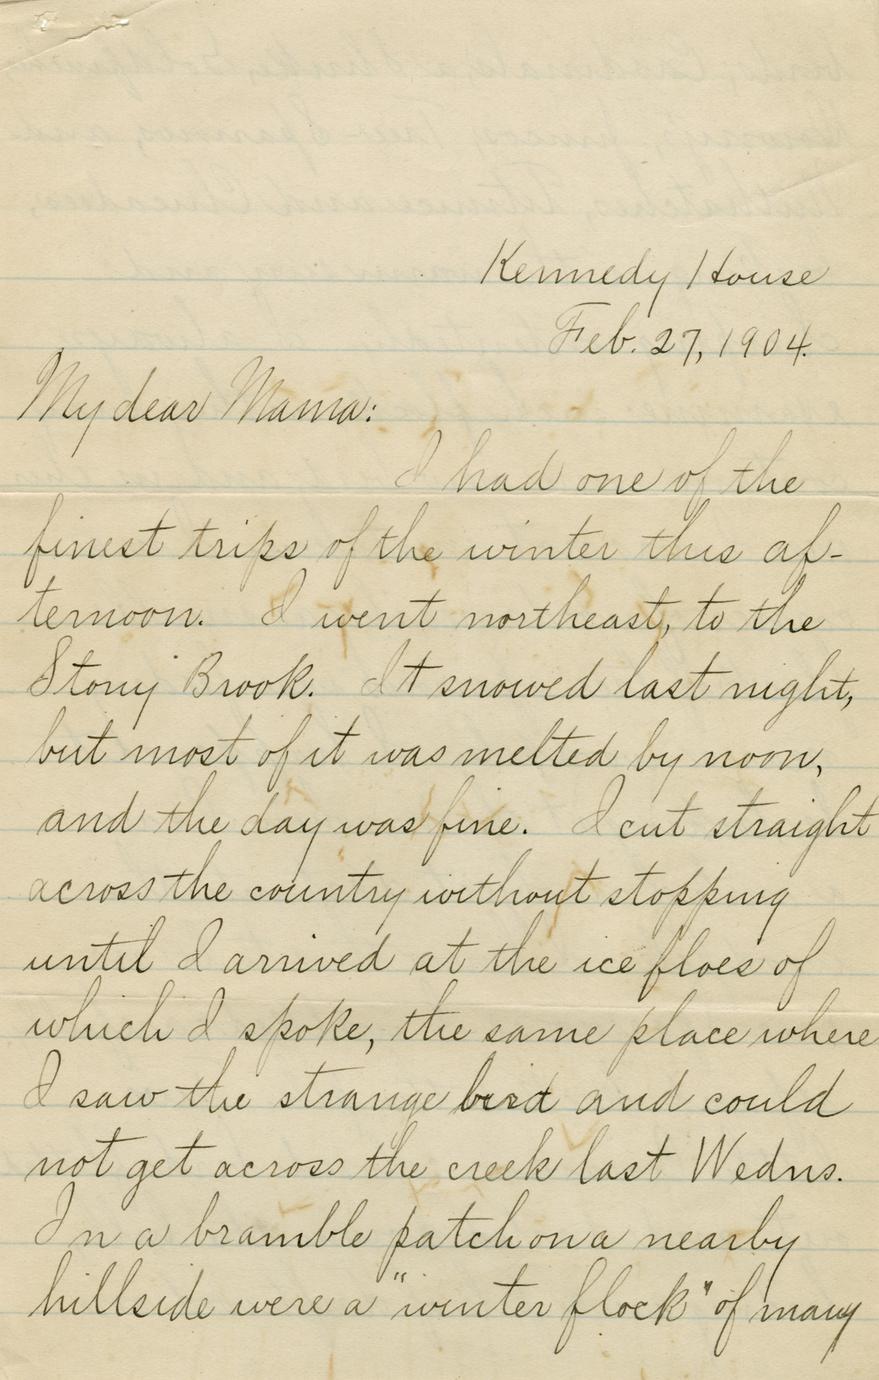 Kennedy House
Feb. 27, 1904.
My dear Mama:
I had one of the
finest trips of the winter this af-
ternoon. I went northeast, to the
Stony Brook. It snowed last night,
but most of it was melted by noon,
and the day was fine. I cut straight
across the country without stopping
until I arrived at the ice floes of
which I spoke, the same place where
I saw the strange bird and could
not get across the creek last Wedns.
In a bramble patch on a nearby
hillside were a "winter flock" of many